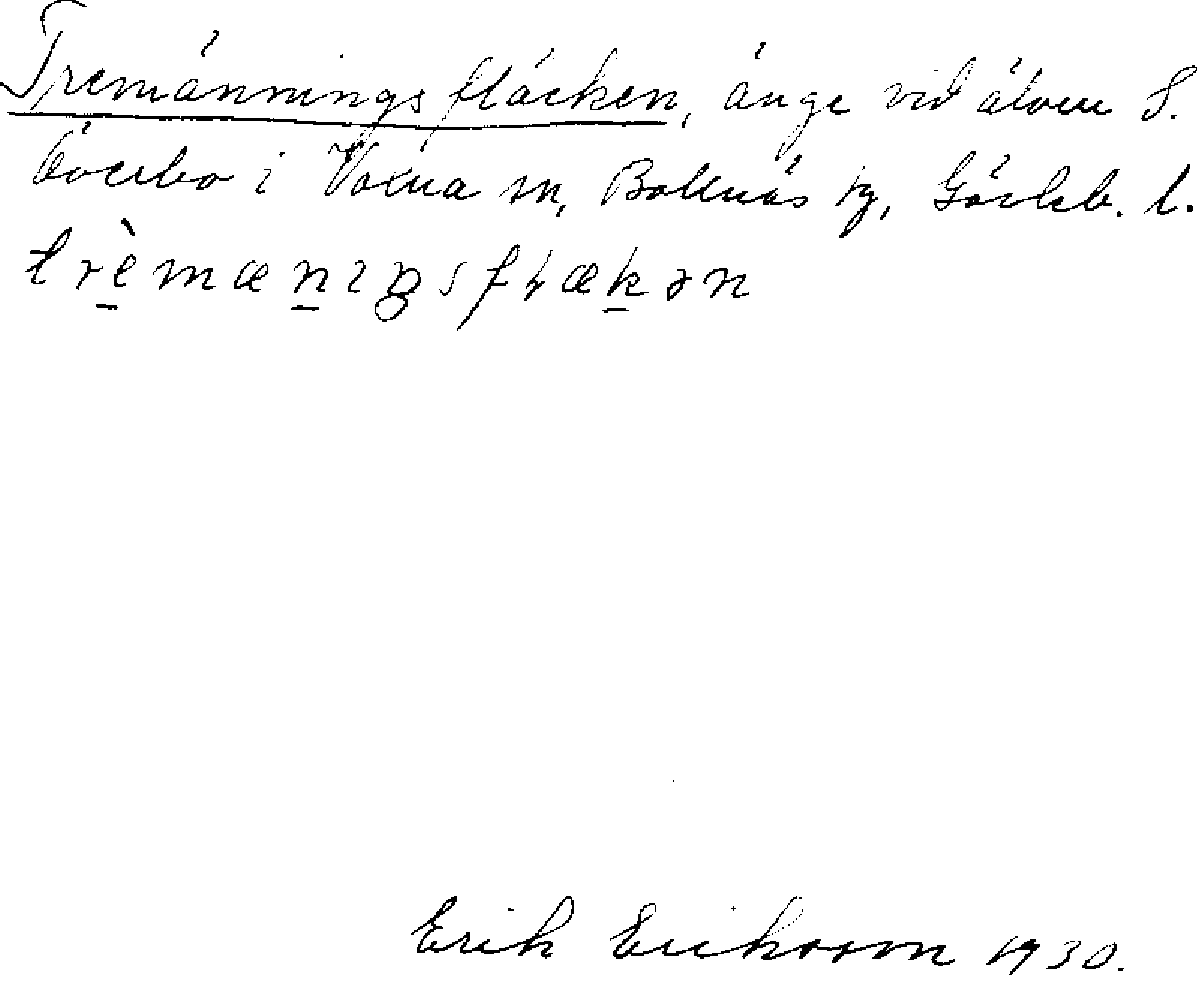 Tremänningsfläcken, änge vid älven S.
Överbo i Voxna sn, Bollnäs tg, Gävleb. l.
trèmæn̠ıŋsfɽæk̠ən
Erik Eriksson 1930.